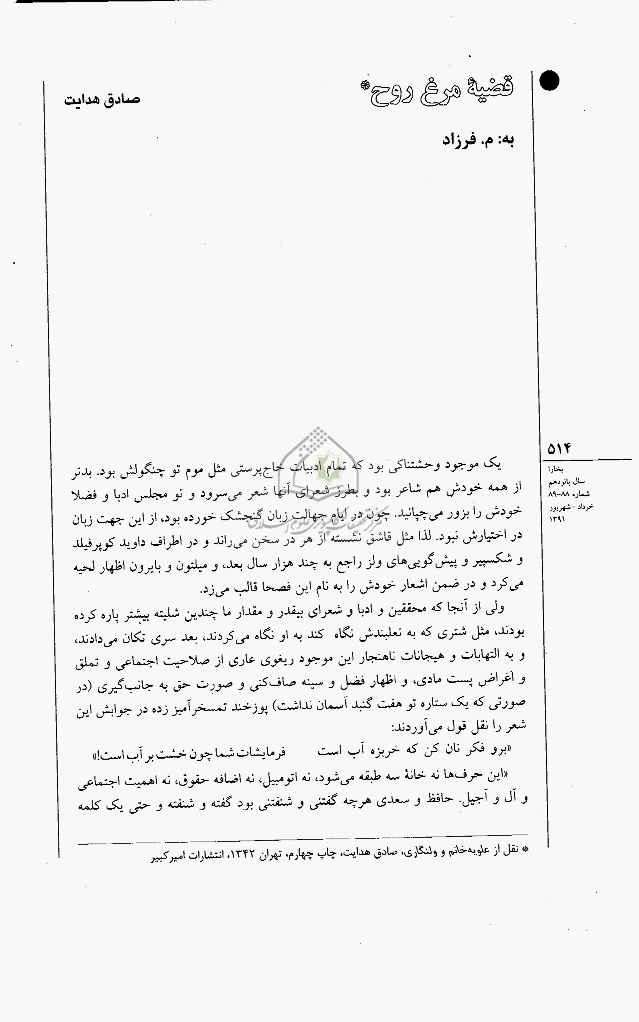 قضیهٔ مرغ روح*
صادق هدایت
به: م. فرزاد
۵۱۴
بخارا
سال پانزدهم
شماره ۸۸-۸۹
خرداد - شهریور
۱۳۹۱
یک موجود وحشتناکی بود که تمام ادبیات خاج‌پرستی مثل موم تو چنگولش بود. بدتر
از همه خودش هم شاعر بود و بطرز شعرای آنها شعر می‌سرود و تو مجلس ادبا و فضلا
خودش را بزور می‌چپانید. چون در ایام جهالت زبان گنجشک خورده بود، از این جهت زبان
در اختیارش نبود. لذا مثل قاشق نشسته از هر در سخن می‌راند و در اطراف داوید کوپرفیلد
و شکسپیر و پیش‌گویی‌های ولز راجع به چند هزار سال بعد، و میلتون و بایرون اظهار لحیه
می‌کرد و در ضمن اشعار خودش را به نام این فصحا قالب می‌زد.
ولی از آنجا که محققین و ادبا و شعرای بیقدر و مقدار ما چندین شلیته بیشتر پاره کرده
بودند، مثل شتری که به نعلبندش نگاه کند به او نگاه می‌کردند، بعد سری تکان می‌دادند،
و به التهابات و هیجانات ناهنجار این موجود ریغوی عاری از صلاحیت اجتماعی و تملق
و اغراض پست مادی، و اظهار فضل و سینه صاف‌کنی و صورت حق به جانب‌گیری (در
صورتی که یک ستاره تو هفت گنبد آسمان نداشت) پوزخند تمسخرآمیز زده در جوابش این
شعر را نقل قول می‌آوردند:
«برو فکر نان کن که خربزه آب است فرمایشات شما چون خشت بر آب است!»
«این حرف‌ها نه خانهٔ سه طبقه می‌شود، نه اتومبیل، نه اضافه حقوق، نه اهمیت اجتماعی
و آل و آجیل. حافظ و سعدی هرچه گفتنی و شنفتنی بود گفته و شنفته و حتی یک کلمه
* نقل از علویه‌خانم و ولنگاری، صادق هدایت، چاپ چهارم، تهران ۱۳۴۲، انتشارات امیرکبیر